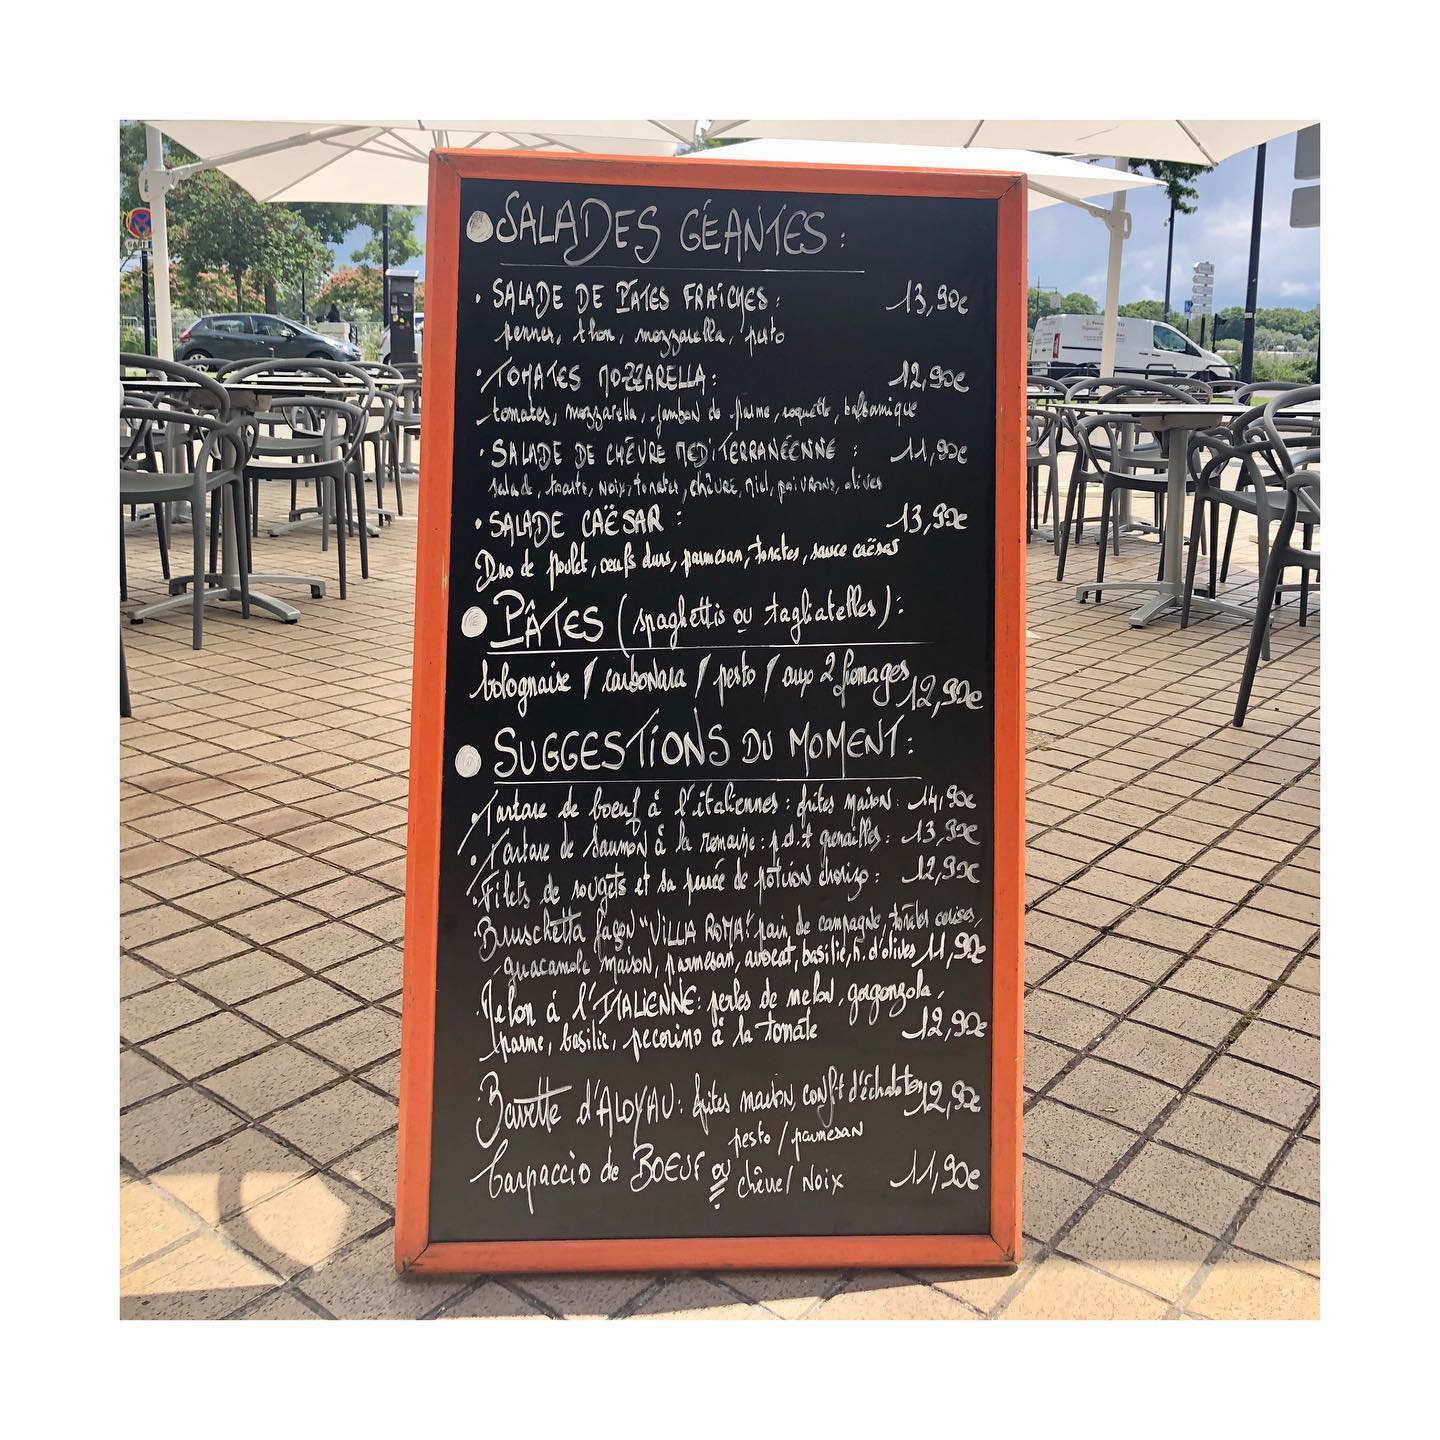 SALADES GÉANTES :
• SALADE DE PATES FRAÎCHES : 13,90€
pennes, thon, mozzarella, pesto
• TOMATES MOZZARELLA : 12,90€
tomates, mozzarella, jambon de parme, roquette, balsamique
• SALADE DE CHÈVRE MEDITERRANÉENNE : 11,90€
salade, toasts, noix, tomates, chèvre, miel, poivrons, olives
• SALADE CAËSAR : 13,90€
Duo de poulet, oeufs durs, parmesan, tomates, sauce caësar
PÂTES (spaghettis ou tagliatelles) :
bolognaise / carbonara / pesto / aux 2 fromages 12,90€
SUGGESTIONS DU MOMENT :
• Tartare de boeuf à l'italiennes : frites maison : 14,90€
• Tartare de Saumon à la romaine : p.d.t grenailles : 13,90€
• Filets de rougets et sa purée de potiron chorizo : 12,90€
• Bruschetta façon "VILLA ROMA" : pain de campagne, tomates cerises,
guacamole maison, parmesan, avocat, basilic, h. d'olives 11,90€
• Melon à l'ITALIENNE : perles de melon, gorgonzola,
parme, basilic, pecorino à la tomate 12,90€
• Bavette d'ALOYAU : frites maison, confit d'échalotes 12,90€
pesto / parmesan
Carpaccio de BOEUF ou chèvre/ Noix 11,90€